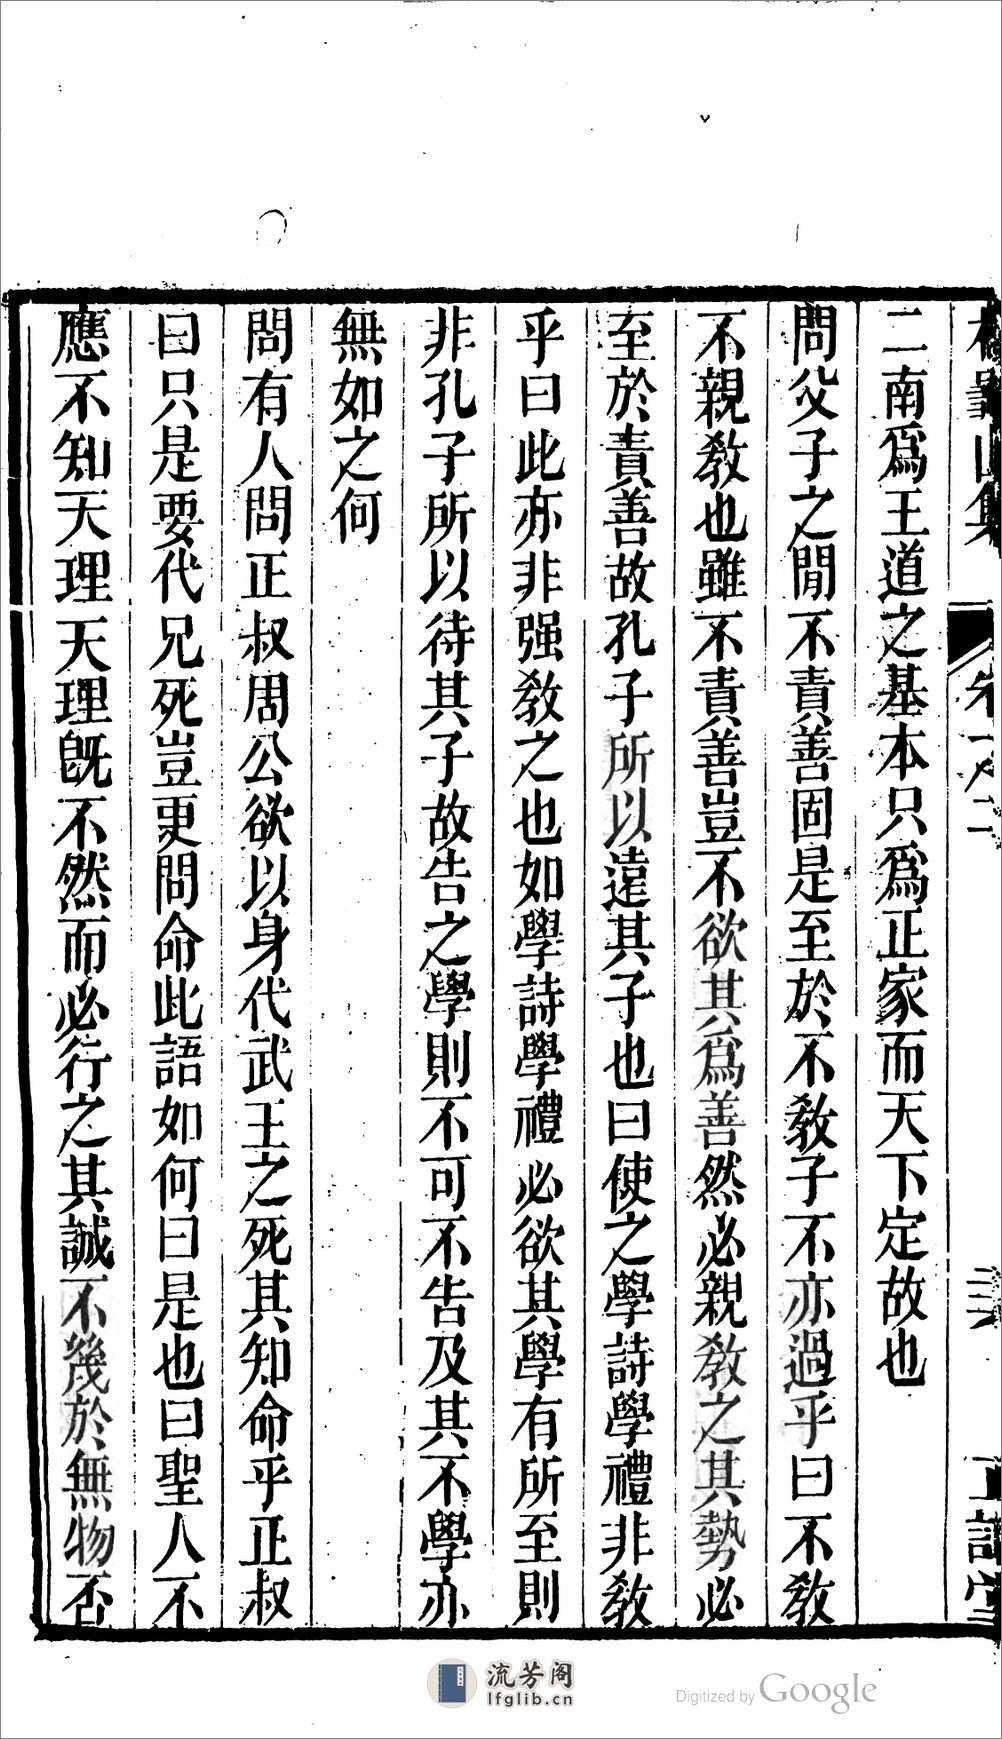 二南爲王道之基本只爲正家而天下定故也
問父子之閒不責善固是至於不敎子不亦過乎曰不敎
不親敎也雖不責善豈不欲其爲善然必親敎之其勢必
至於責善故孔子所以遠其子也曰使之學詩學禮非敎
乎曰此亦非强敎之也如學詩學禮必欲其學有所至則
非孔子所以待其子故告之學則不可不告及其不學亦
無如之何
問有人問正叔周公欲以身代武王之死其知命乎正叔
曰只是要代兄死豈更問命此語如何曰是也曰聖人不
應不知天理天理旣不然而必行之其誠不幾於無物否
流芳阁
lfglib.cn
Digitized by Google